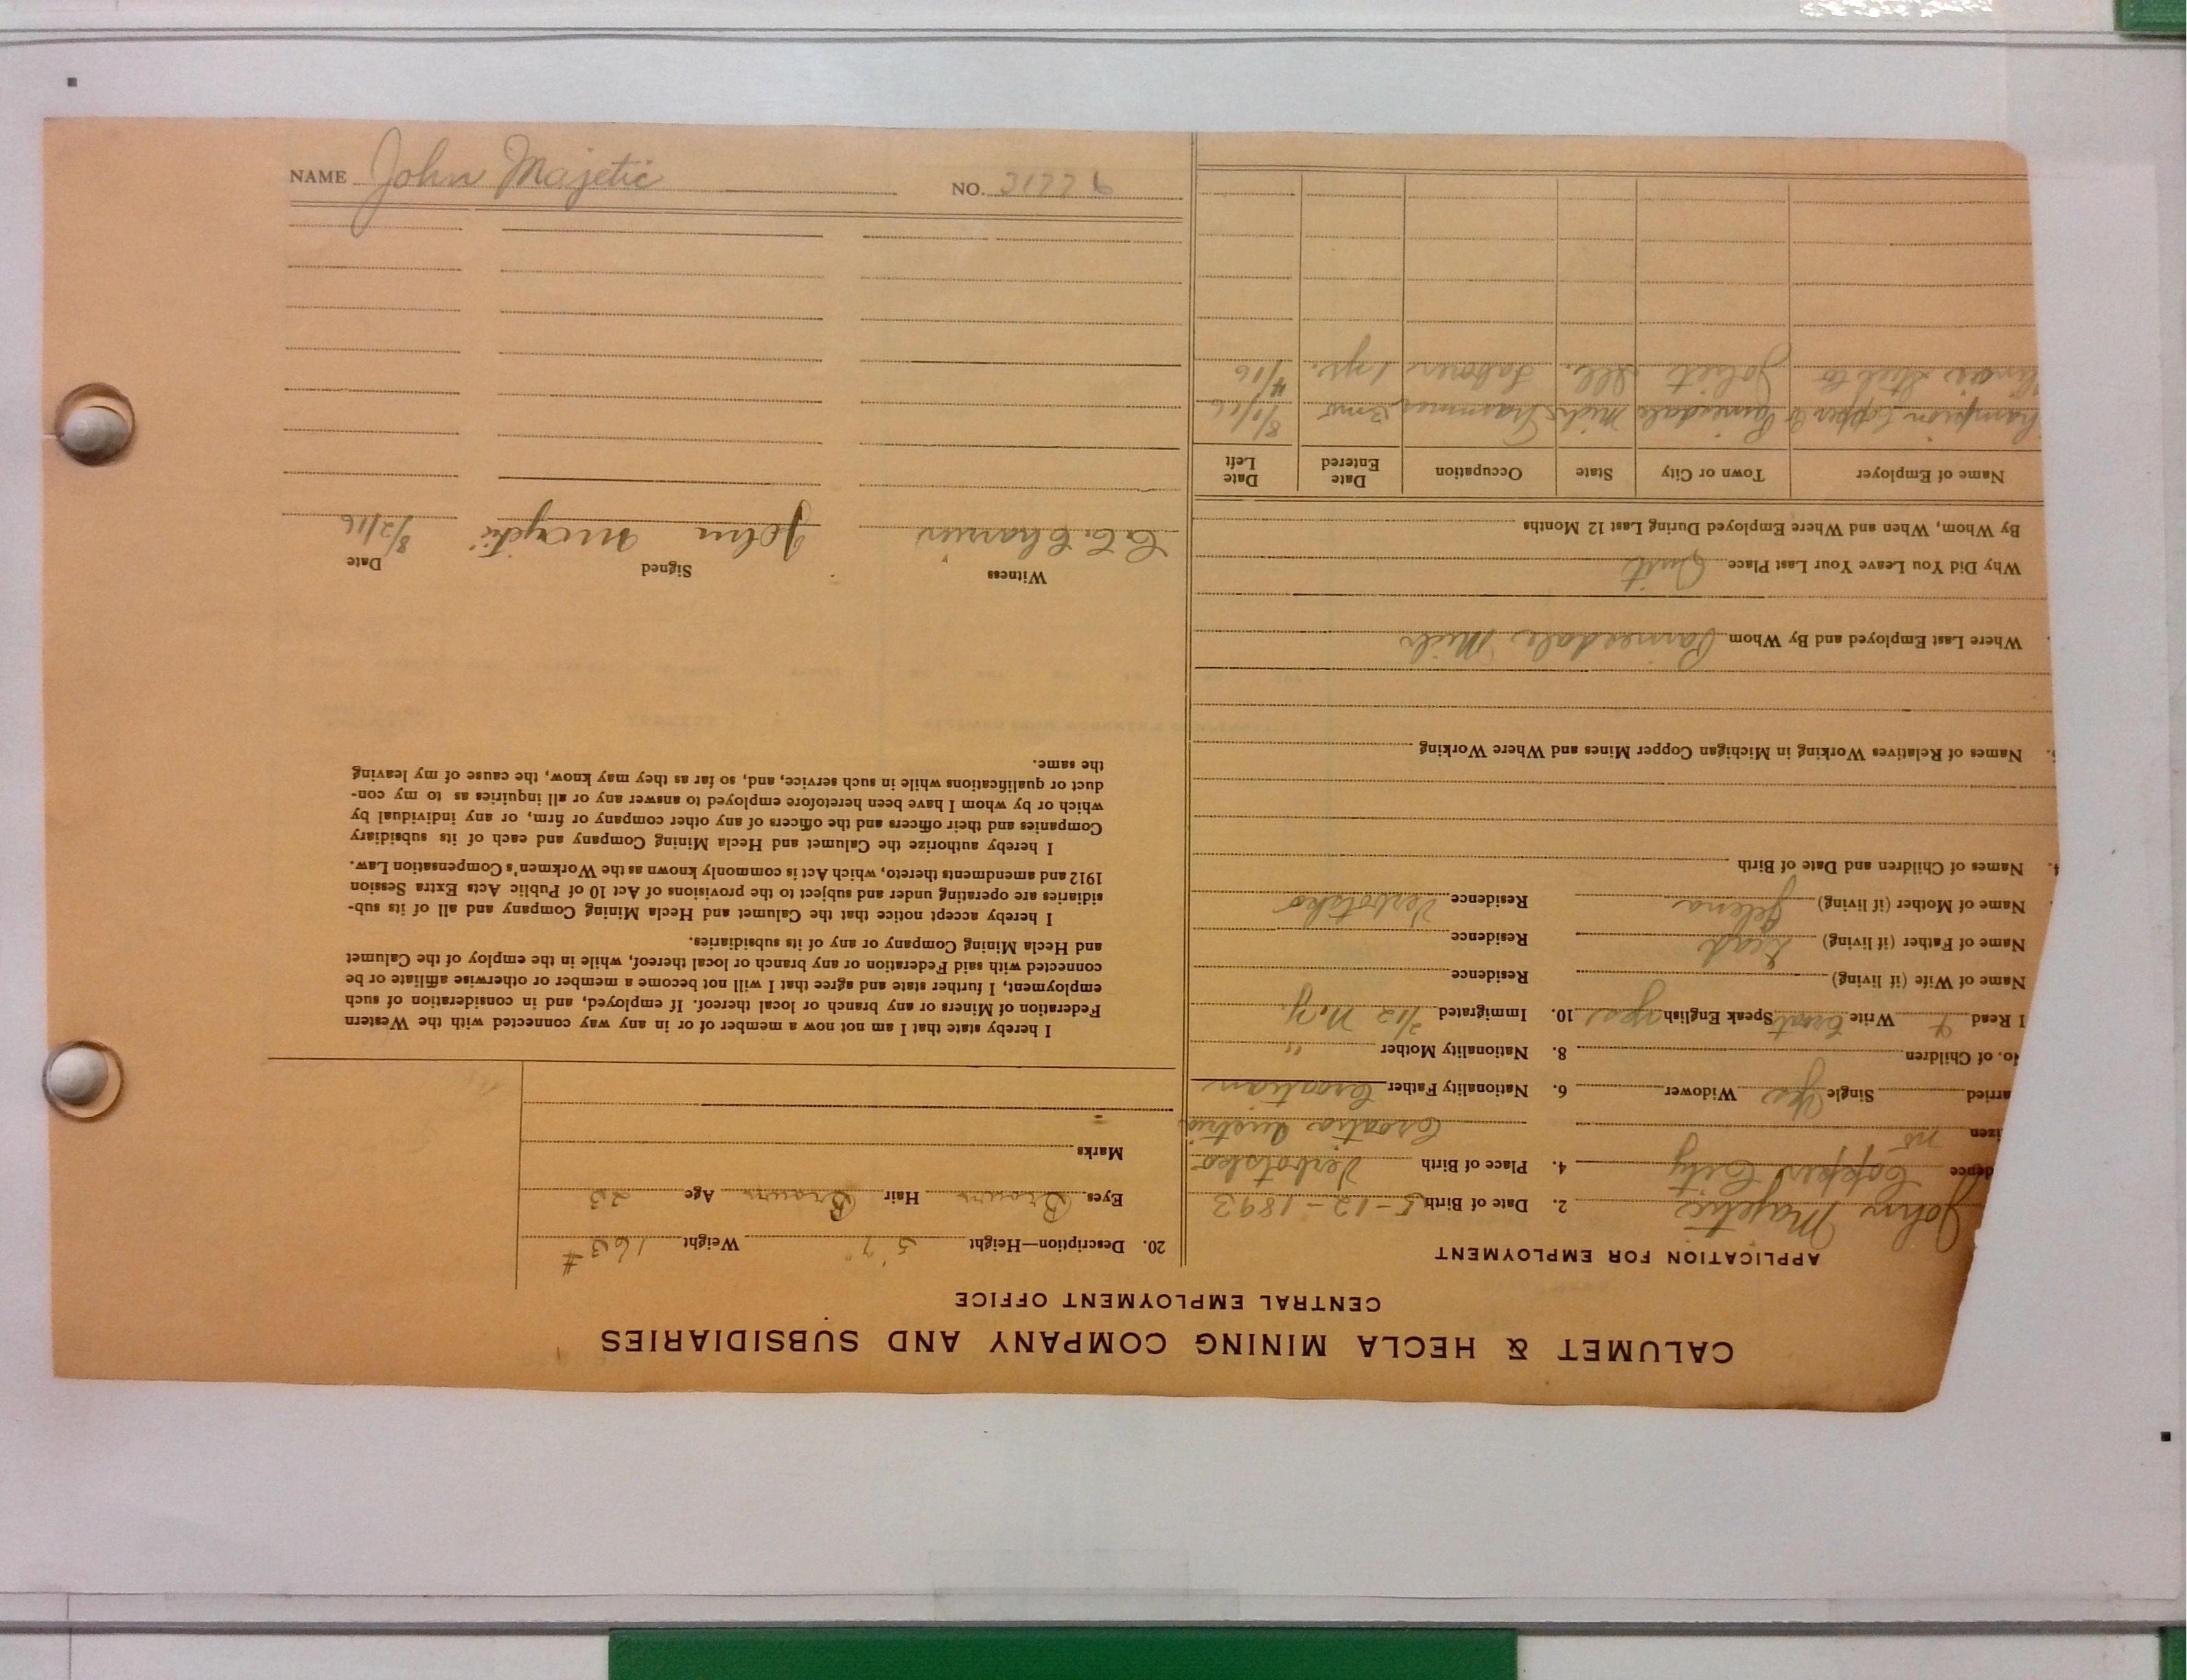 NAME John Majetic NO. 31776
CALUMET & HECLA MINING COMPANY AND SUBSIDIARIES
CENTRAL EMPLOYMENT OFFICE
APPLICATION FOR EMPLOYMENT
John Majetic 2. Date of Birth 5-12-1893
dence Copper City 4. Place of Birth Verbotsko
izen no Croatia Austria
arried Single yes Widower 6. Nationality Father Croatian
No. of Children 8. Nationality Mother "
I Read & Write Croat Speak English yes 10. Immigrated 2/12 N.Y.
Name of Wife (if living) Residence
Name of Father (if living) Dead Residence
Name of Mother (if living) Jelena Residence Verbotsko
4. Names of Children and Date of Birth
5. Names of Relatives Working in Michigan Copper Mines and Where Working
Where Last Employed and By Whom Painesdale Mich
Why Did You Leave Your Last Place Quit
By Whom, When and Where Employed During Last 12 Months
Name of Employer Town or City State Occupation Date Entered Date Left
hampion Copper Co Painesdale Mich Trammer 3 mo 8/1/16
llinois Steel Co Joliet Ill. Laborer 1 yr. 4/16
20. Description—Height 5' 7" Weight 163#
Eyes Brown Hair Brown Age 23
Marks
I hereby state that I am not now a member of or in any way connected with the Western
Federation of Miners or any branch or local thereof. If employed, and in consideration of such
employment, I further state and agree that I will not become a member or otherwise affiliate or be
connected with said Federation or any branch or local thereof, while in the employ of the Calumet
and Hecla Mining Company or any of its subsidiaries.
I hereby accept notice that the Calumet and Hecla Mining Company and all of its sub-
sidiaries are operating under and subject to the provisions of Act 10 of Public Acts Extra Session
1912 and amendments thereto, which Act is commonly known as the Workmen's Compensation Law.
I hereby authorize the Calumet and Hecla Mining Company and each of its subsidiary
Companies and their officers and the officers of any other company or firm, or any individual by
which or by whom I have been heretofore employed to answer any or all inquiries as to my con-
duct or qualifications while in such service, and, so far as they may know, the cause of my leaving
the same.
Witness Signed Date
John Majetić 8/2/16